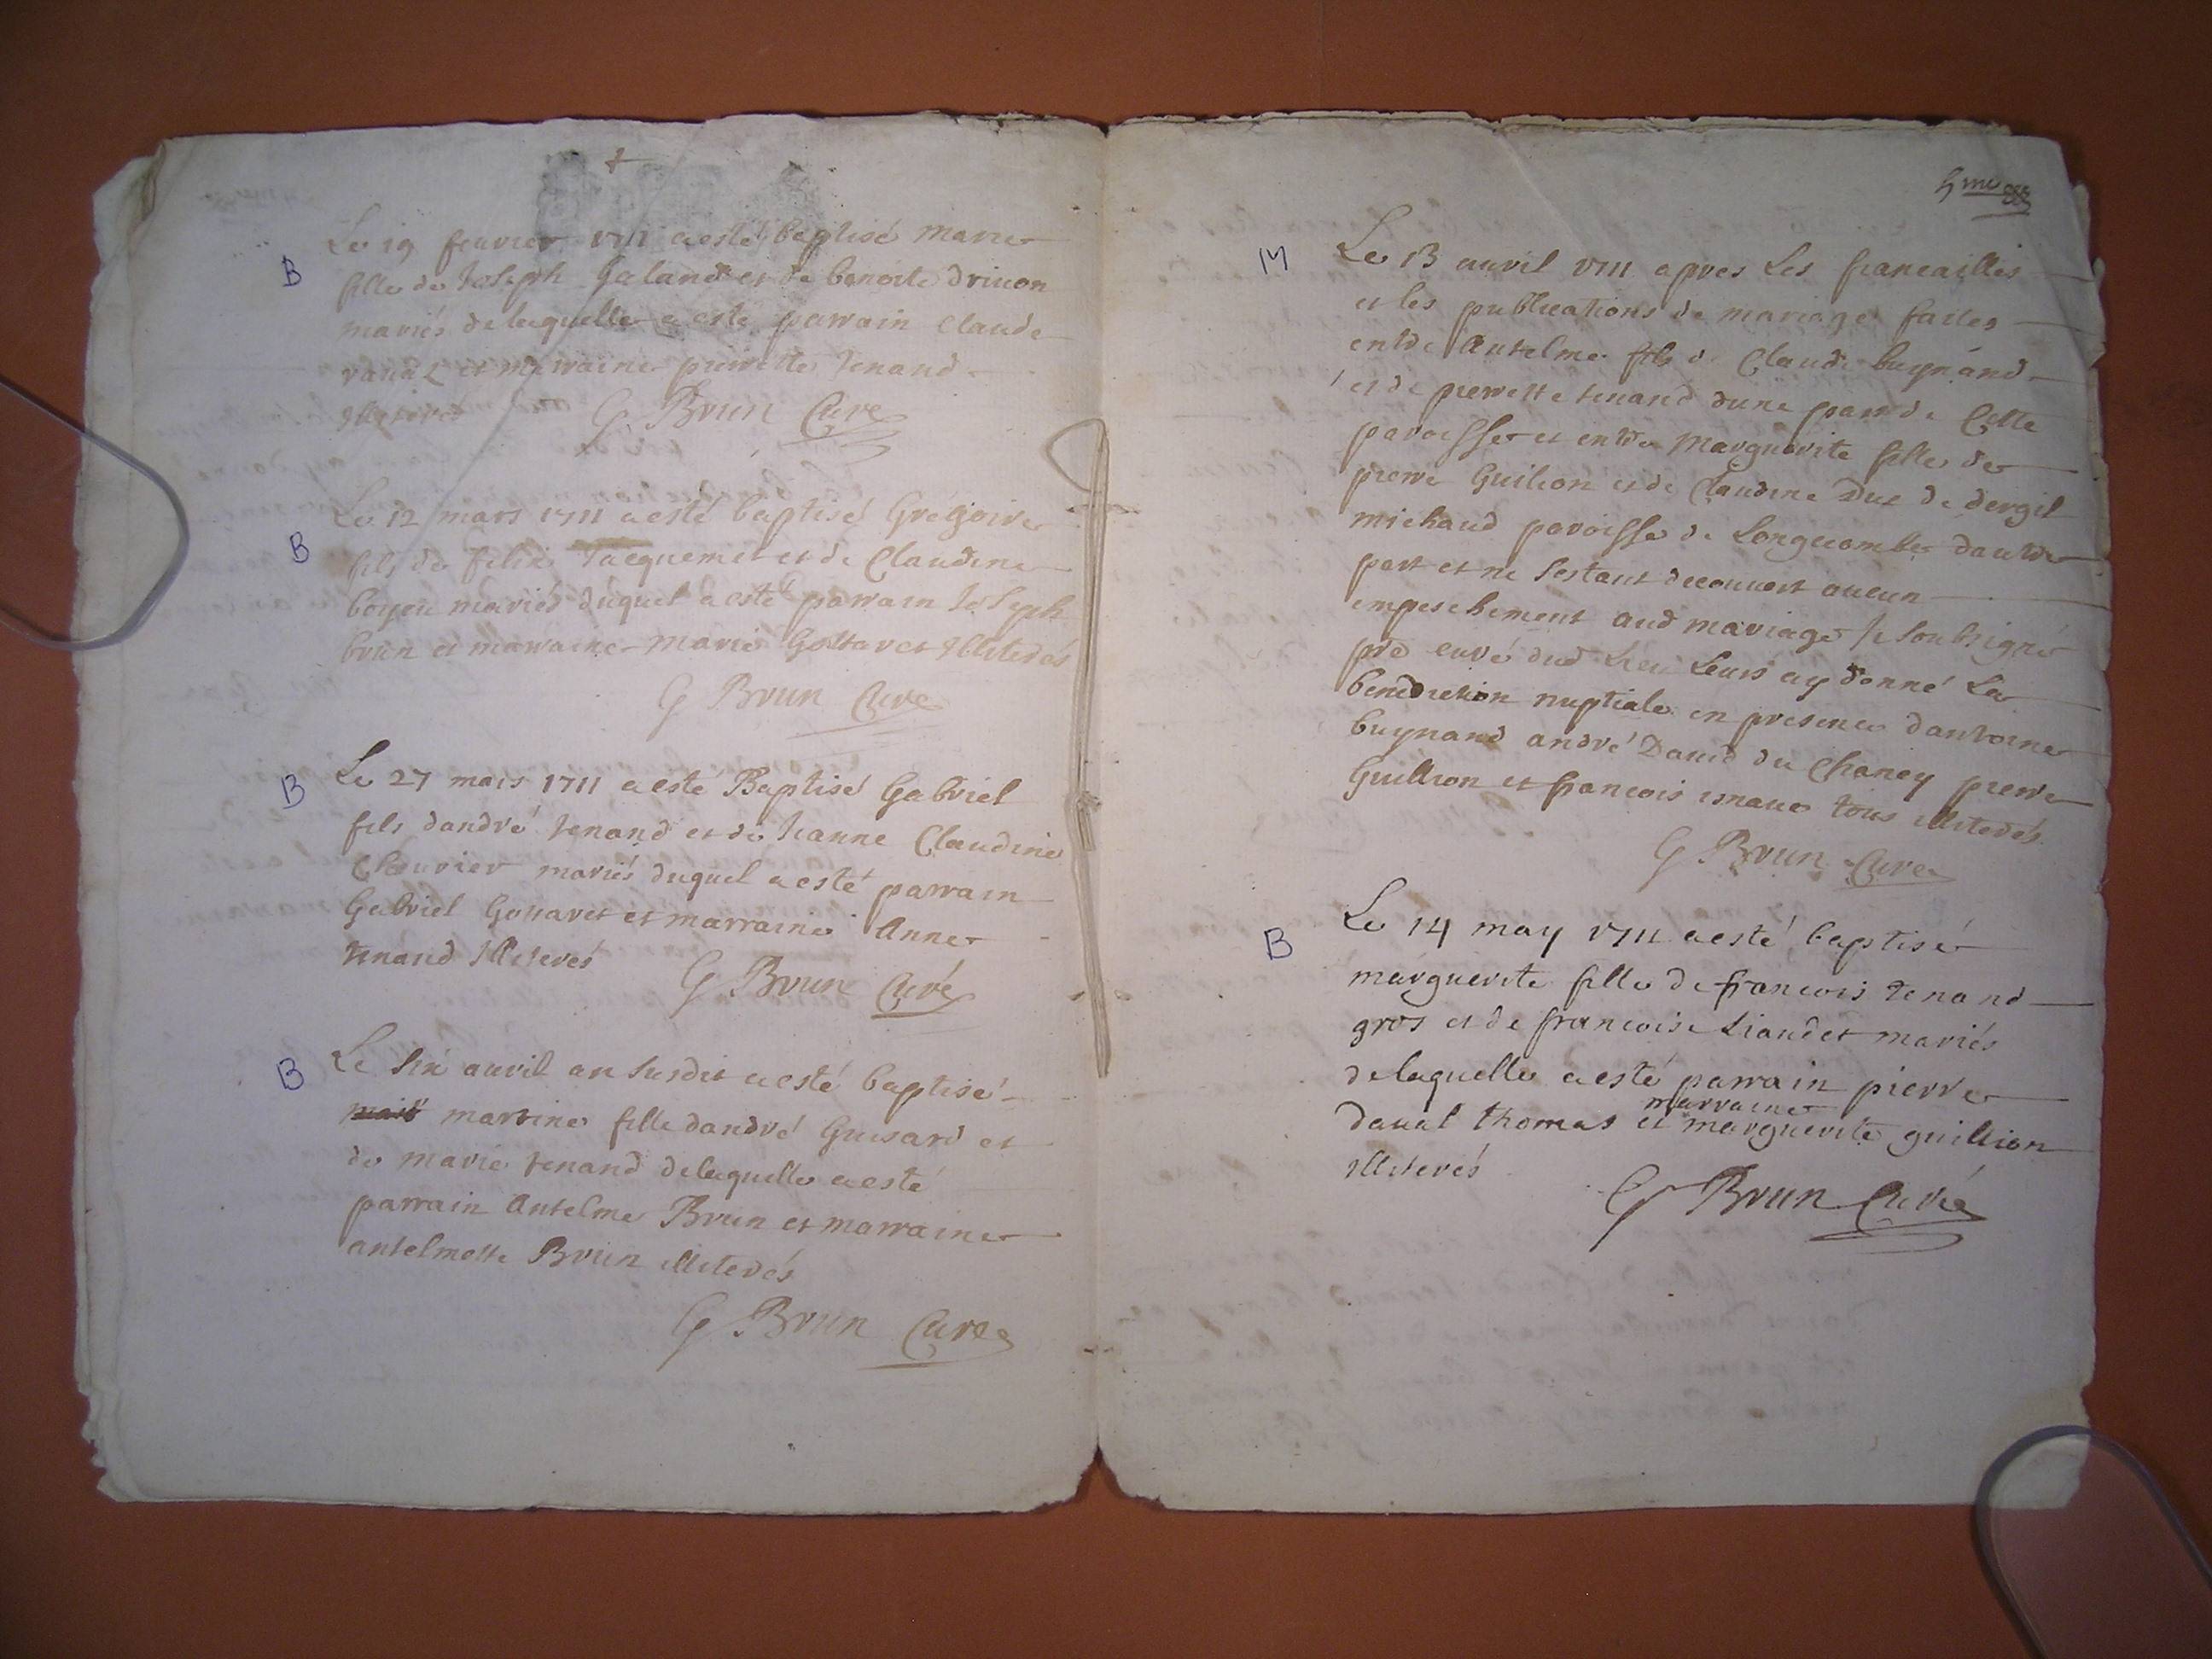 B
Le 19 feurier 1711 a esté baptisé marie
fille de Joseph Galand et de benoite driuon
mariés de laquelle a esté parrain Claude
et marraine pierrette tenand
illiterés G Brun Curé
B
Le 12 mars 1711 a esté baptisé Grégoire
fils de felix Jacquemet et de Claudine
boyeu mariés duquel a esté parrain Joseph
brun et marraine marie Gottaret Illiterés
G Brun Curé
B
Le 27 mars 1711 a esté Baptisé Gabriel
fils dandré tenand et de Jeanne Claudine
Cheurier mariés duquel a esté parrain
Gabriel Gottaret et marraine Anne
tenand Illiterés G Brun Curé
B
Le Six auril an susdit a esté baptisé
martine fille dandré Guisard et
de marie tenand de laquelle a esté
parrain Antelme Brun et marraine
antelmette Brun illiterés
G Brun Curé
5me
M
Le 13 auril 1711 apres Les fiancailles
et les publications de mariage faites
entre Antelme fils de Claude buynand
et de pierrette tenand dune part de Cette
paroisse et entre Marguerite fille de
pierre Guilion et de Claudine Duc de dergil
michaud paroisse de Longecombe dautre
part et ne sestant decouuert aucun
empeschement aud mariage je soubsigné
pre curé dud Lieu Leurs ay donné La
benediction nuptiale en presence dantoine
buynand andré Dauid du Chaney pierre
Guillion et francois tous illiterés
G Brun Curé
B
Le 14 may 1711 a esté baptisé
marguerite fille de francois tenand
gros et de francoise Liaudet mariés
de laquelle a esté parrain pierre
daual thomas et marraine marguerite guillion
illiterés
G Brun Curé